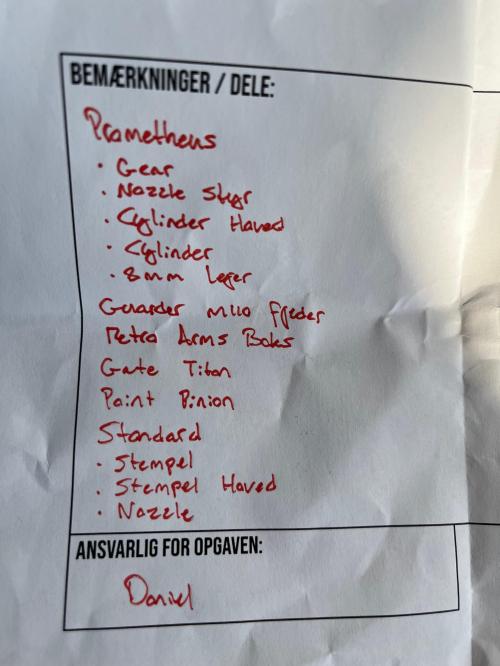 BEMÆRKNINGER / DELE:
Prometheus
· Gear
· Nozzle Styr
· Cylinder Haved
· Cylinder
· 8mm Lejer
Guarder M110 Fjeder
Retro Arms Boks
Gate Titan
Point Pinion
Standard
· Stempel
· Stempel Haved
· Nozzle
ANSVARLIG FOR OPGAVEN:
Daniel